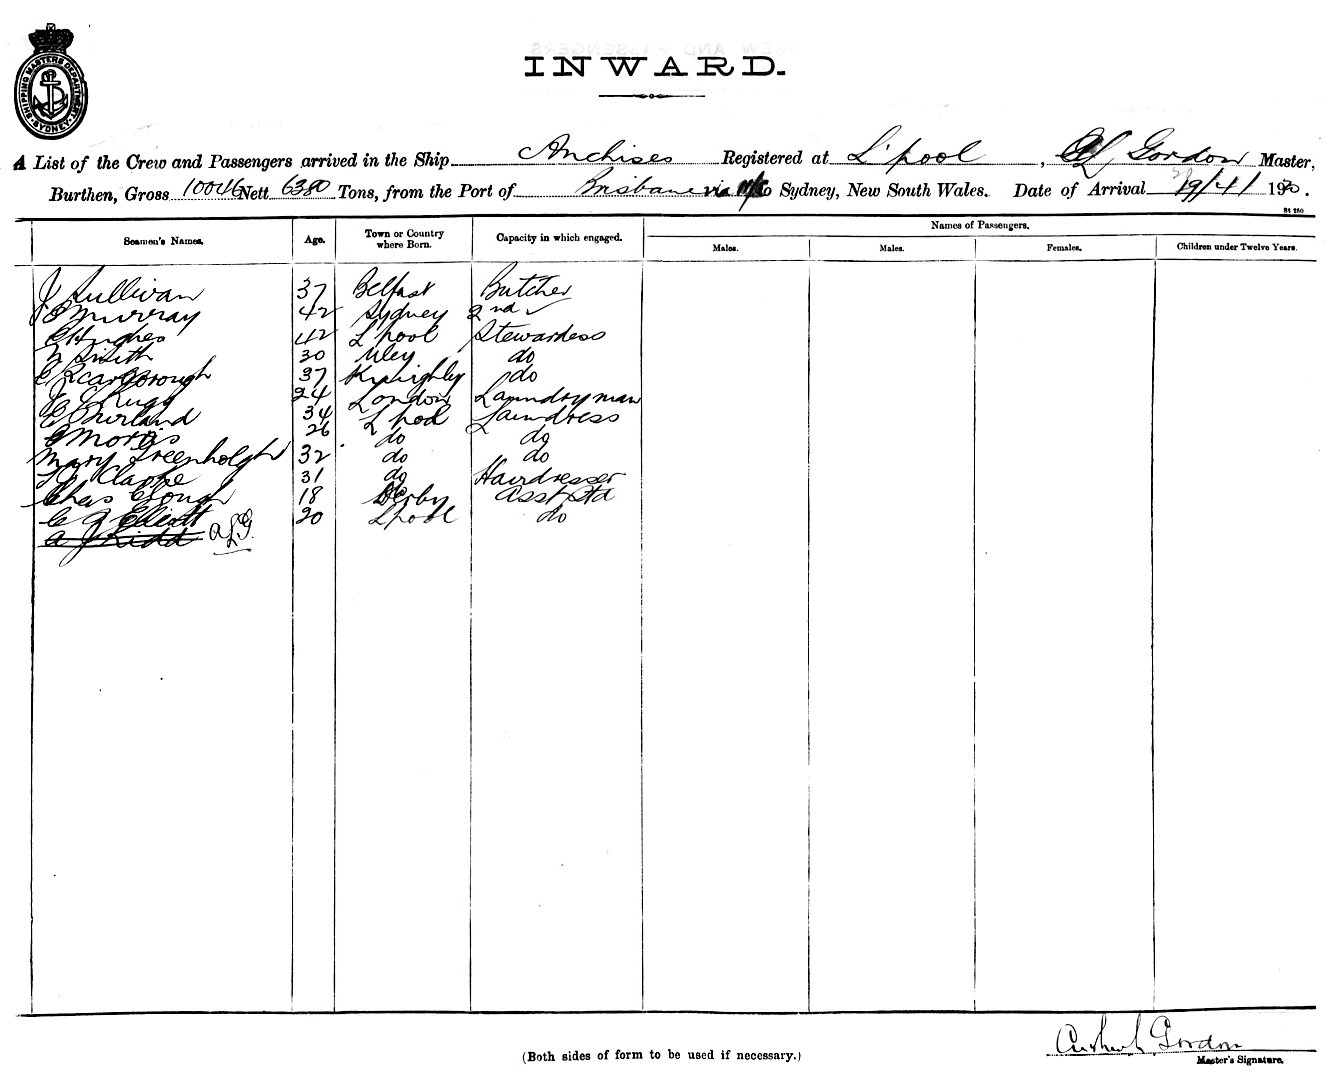 SHIPPING MASTERS DEPARTMENT
SYDNEY
INWARD.
A List of the Crew and Passengers arrived in the Ship Anchises Registered at L'pool, Gordon Master,
Burthen, Gross 10046 Nett 6380 Tons, from the Port of Brisbane via Sydney, New South Wales. Date of Arrival 19/4/ 1920.
Seamen's Names. Age. Town or Country where Born. Capacity in which engaged. Names of Passengers.
Males. Males. Females. Children under Twelve Years.
J Sullivan 37 Belfast Butcher
J E Murray 42 Sydney 2nd
E Hughes 42 L'pool Stewardess
N Smith 30 Uley do
E Scarborough 37 do
J J Rugg 24 London Laundryman
E Burland 34 L'pool Laundress
E Morris 26 do do
Mary Greenholgh 32 do do
Clarke 31 do Hairdresser
Chas Gough 18 Derby Asst Std
C A Elliott 20 L'pool do
A J Kidd ALG.
(Both sides of form to be used if necessary.)
Gordon
Master's Signature.